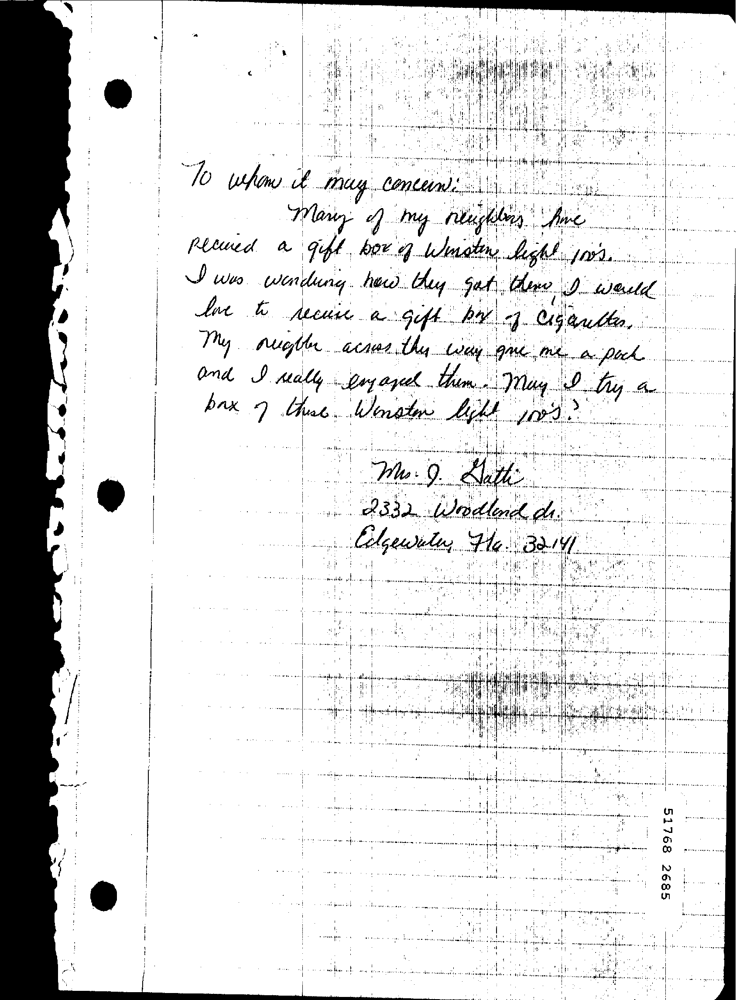 To whom it may concern:
Many of my neighbors have
recieved a gift box of Winston light 100's.
I was wondering how they got them, I would
love to recieve a gift box of cigarettes.
My neighbor across the way gave me a pack
and I really enjoyed them. May I try a
box of these Winston light 100's?
Mrs. J. Gatti
2332 Woodland dr.
Edgewater, Fla. 32141
51768 2685